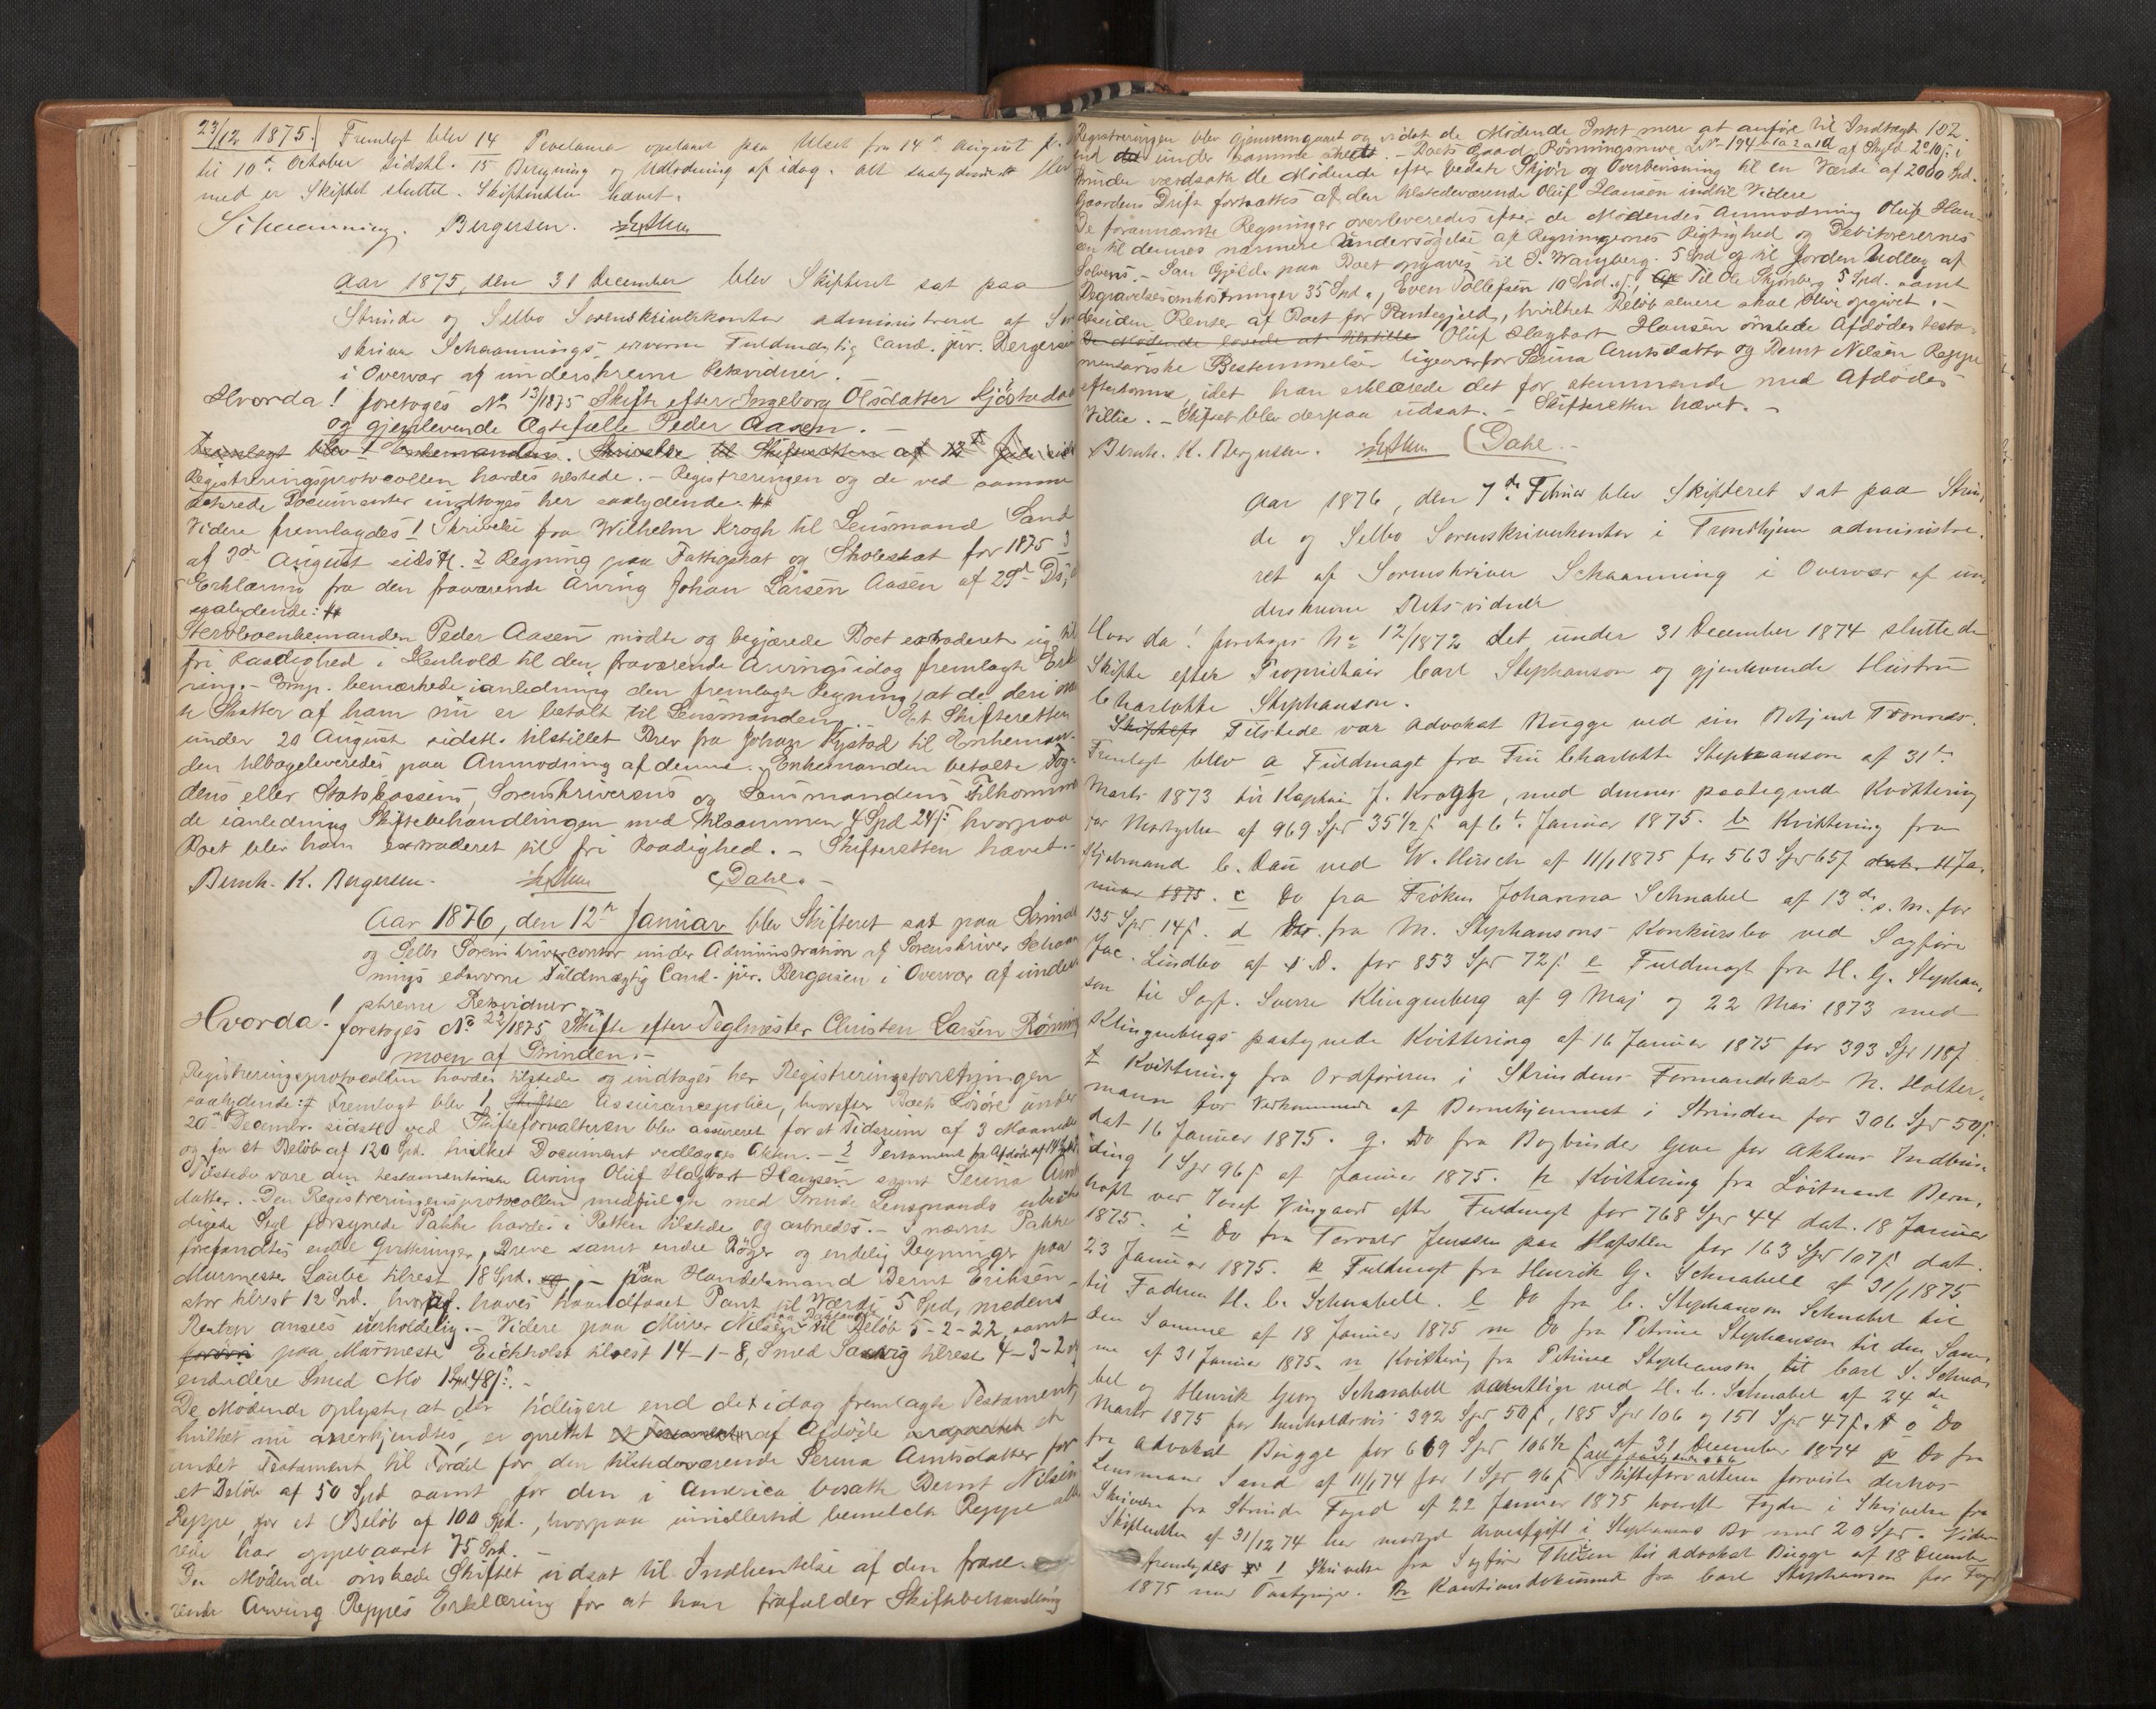 23/12 1875. Fremlagt blev 14 optaget paa fra 14de August
til 10de October sidstl. 15 Beregning og Udlodning af idag. Alt saalydende. Her
med er Skiftet sluttet. Skifteretten hævet.
Schaanning. Bergersen.
Aar 1875, den 31 December blev Skifteret sat paa
Strinde og Selbo Sorenskriverkontor administreret af Soren
skriver Schaannings edsvorne Fuldmægtig Cand. jur. Bergersen
i Overvær af underskrevne Retsvidner.
Hvorda! foretoges No 13/1875 Skifte efter Ingeborg Olsdatter
og gjenlevende Ægtefælle Peder Aasen. -
Fremlagt blev 1 Enkemandens Skrivelse til Skifteretten af 12te
Registreringsprotocollen havdes tilstede. - Registreringen og de ved samme
Documenter indtages her saalydende. #
Videre fremlagdes 1 Skrivelse fra Wilhelm Krogh til Lensmand Sand
af 3de August sidstl. 2 Regning paa Fattigskat og Skoleskat for 1875 3
Erklæring fra den fraværende Arving Johan Larsen Aasen af 29de Ds,
saalydende: #
Stervboenkemanden Peder Aasen mødte og begjærede Boet extraderet sig til
fri Raadighed i Henhold til den fraværende Arvings idag fremlagte Erklæ
ring. - Comp. bemærkede ianledning den fremlagte Regning, at de deri
te Skatter af ham nu er betalt til Lensmanden. - Et Skifteretten
under 20 August sidstl. tilstillet Brev fra Johan Rystad til Enkeman-
den tilbageleveredes paa Anmodning af denne. - Enkemanden betalte Fog-
dens eller Statskassens, Sorenskriverens og Lensmandens Tilkommen
de ianledning Skiftebehandlingen med tilsammen 4 Spd 24 s: hvorpaa
Boet blev ham extraderet til fri Raadighed. - Skifteretten hævet. -
Bernh. K. Bergersen. Dahl. -
Aar 1876, den 12te Januar blev Skifteret sat paa Strinde
og Selbo Sorenskrivercontor under Administration af Sorenskriver Schaan
nings edsvorne Fuldmægtig Cand. jur. Bergersen i Overvær af under
skrevne Retsvidner
Hvorda! foretoges No 22/1875 Skifte efter Teglmester Christen Larsen Rønnings
moen af Strinden. -
Registreringsprotocollen havdes tilstede og indtages her Registreringsforretningen
saalydende: # Fremlagt blev 1 Skiftes Assurancepolice, hvorefter Boets Løsøre under
20de Decembr. sidstl. ved Skifteforvalteren blev assureret for et Tidsrum af 3 Maaneder
og for et Beløb af 120 Spd. hvilket Document vedlægges Akten. - 2 Testament fra Afdøde af
Tilstede vare den testamentariske Arving Oluf Hagbart Hansen samt Serina Arnts
datter. Den Registreringsprotocollen medfulgte med Strinde Lensmands ubeska
digede Segl forsynede Pakke havdes i Retten tilstede og aabnedes. - I nævnte Pakke
forefandtes endel Qvitteringer, Breve samt endre Bøger og endelig Regninger paa
Murmester Laube tilrest 18 Spd. og; - paa Handelsmand Bernt Eriksen
stor tilrest 12 Spd. hvoraf haves haandfaaet Pant til Værdi 5 Spd, medens
Resten ansees uerholdelig. - Videre paa Murer Nilsen til Beløb 5-2-22, samt
paa Murmester Eichholst tilrest 14-1-8, Smed Saxvig tilrest 4-3-2 og
endvidere Smed Mo 1 Spd 48 s. -
De Mødende oplyste, at der tidligere end det idag fremlagte Testament,
hvilket nu anerkjendtes, er oprettet et Testament af Afdøde et
andet Testament til Fordel for den tilstedeværende Serina Arntsdatter for
et Beløb af 50 Spd samt for den i America bosatte Bernt Nilsen
Reppe, for et Beløb af 100 Spd., hvorpaa imidlertid bemeldte Reppe alle
rede har oppebaaret 75 Spd. -
De Mødende ønskede Skiftet udsat til Indhentelse af den fravæ-
rende Arving Reppes Erklæring for at han frafalder Skiftebehandling
Registreringen blev gjennemgaaet og vidste de Mødende Intet mere at anføre til Indtægt 102.
end det under samme skeet. - Boets Gaard Rønningsmoe L No 194 af Skyld 2 10 s i
Strinde værdsatte de Mødende efter bedste Skjøn og Overbevisning til en Værdi af 2000 Spd.
Gaardens Drift fortsættes af den tilstedeværende Oluf Hansen indtil Videre
De forannævnte Regninger overleveredes efter de Mødendes Anmodning Oluf Han-
sen til dennes nærmere Undersøgelse af Regningernes Rigtighed og Debitorernes
Solvens. - Som Gjæld paa Boet opgaves til J. Wangberg 5 Spd og til Jorden Udlæg af
Begravelsesomkostninger 35 Spd., Even Tollefsen 10 Spd, Til Ole Skjønberg 5 Spd. samt
desuden Renter af Boet for Pantegjæld, hvilket Beløb senere skal blive opgivet. -
De Mødende lovede at tilstille Oluf Hagbart Hansen ønskede Afdødes testa-
mentariske Bestemmelser ligeoverfor Serina Arntsdatter og Bernt Nilsen Reppe
efterkomne, idet han erklærede det for stemmende med Afdødes
Villie. - Skiftet blev derpaa udsat. - Skifteretten hævet. -
Bernh. K. Bergersen. Dahl. -
Aar 1876, den 7de Februar blev Skifteret sat paa Strin,
de og Selbo Sorenskriverkontor i Trondhjem administre.
ret af Sorenskriver Schaanning i Overvær af un,
derskrevne Retsvidner
Hvor da! foretoges No 12/1872 det under 31 December 1874 sluttede
Skifte efter Proprietair Carl Stephanson og gjenlevende Hustru
Charlotte Stephanson.
Skiftets Tilstede var Advokat Bugge ved sin Betjent Trønnes.
Fremlagt blev a Fuldmagt fra Fru Charlotte Stephanson af 31te
Marts 1873 til Kaptain J. Krogh, med dennes paategnede Kvittering
for Modtagelsen af 969 Spd 35 1/2 s af 6te Januar 1875. b Kvittering fra
Kjøbmand C. Dau ved W. Hirsch af 11/1 1875 for 563 Spd 65 s dat. 11 Ja.
nuar 1875. c Do fra Frøken Johanna Schnabel af 13de s. M. for
135 Spd. 14 s. d Do. fra M. Stephansons Konkursbo ved Sagfører
Jac. Lindbo af s. D. for 853 Spd 72 s. e Fuldmagt fra H. G. Stephan,
son til Sagf. Sverre Klingenberg af 9 Maj og 22 Mai 1873 med
Klingenbergs paategnede Kvittering af 16 Januar 1875 for 393 Spd 118 s.
f Kvittering fra Ordføreren i Strindens Formandskab N. Holter,
mann for Vedkommende af Børnehjemmet i Strinden for 306 Spd 50 s.
dat 16 Januar 1875. g. Do fra Bogbinder Geve for Aktens Indbin
ding 1 Spd 96 s af Januar 1875. h Kvittering fra Løitnant Bern,
hoft ved Josef Vingaard efter Fuldmagt for 768 Spd 44 dat. 18 Januar
1875. i Do fra Torvald Jenssen paa Hafsten for 163 Spd 107 s. dat.
23 Januar 1875. k Fuldmagt fra Henrik G. Schnabell af 31/1 1875
til Faderen H. C. Schnabell. l Do fra C. Stephanson Schnabel til
den Samme af 18 Januar 1875 m Do fra Petrine Stephanson til den Sam,
me af 31 Januar 1875. n Kvittering fra Petrine Stephanson, til Carl S. Schna,
bel og Henrik Georg Schnabell samtlige ved H. C. Schnabel af 24de
Marts 1875 for henholdsvis 392 Spd 50 s, 185 Spd 106 og 151 Spd 47 s. o Do
fra Advokat Bugge for 669 Spd 106 1/2 s af 31 December 1874 p Do fra
Lensmand Sand af 11/1 74 for 1 Spd 96 s Skifteforvalteren foreviste derhos
Skrivelse fra Strinde Foged af 22 Januar 1875 hvorefter Fogden i Skrivelse fra
Skifteretten af 31/12 74 har modtaget Arveafgift i Stephansons Bo med 20 Spd. Videre
fremlagdes 1 Skrivelse fra Sagfører Thesen til Advokat Bugge af 18 December
1875 med Paategning. Kautionsdokument fra Carl Stephanson for